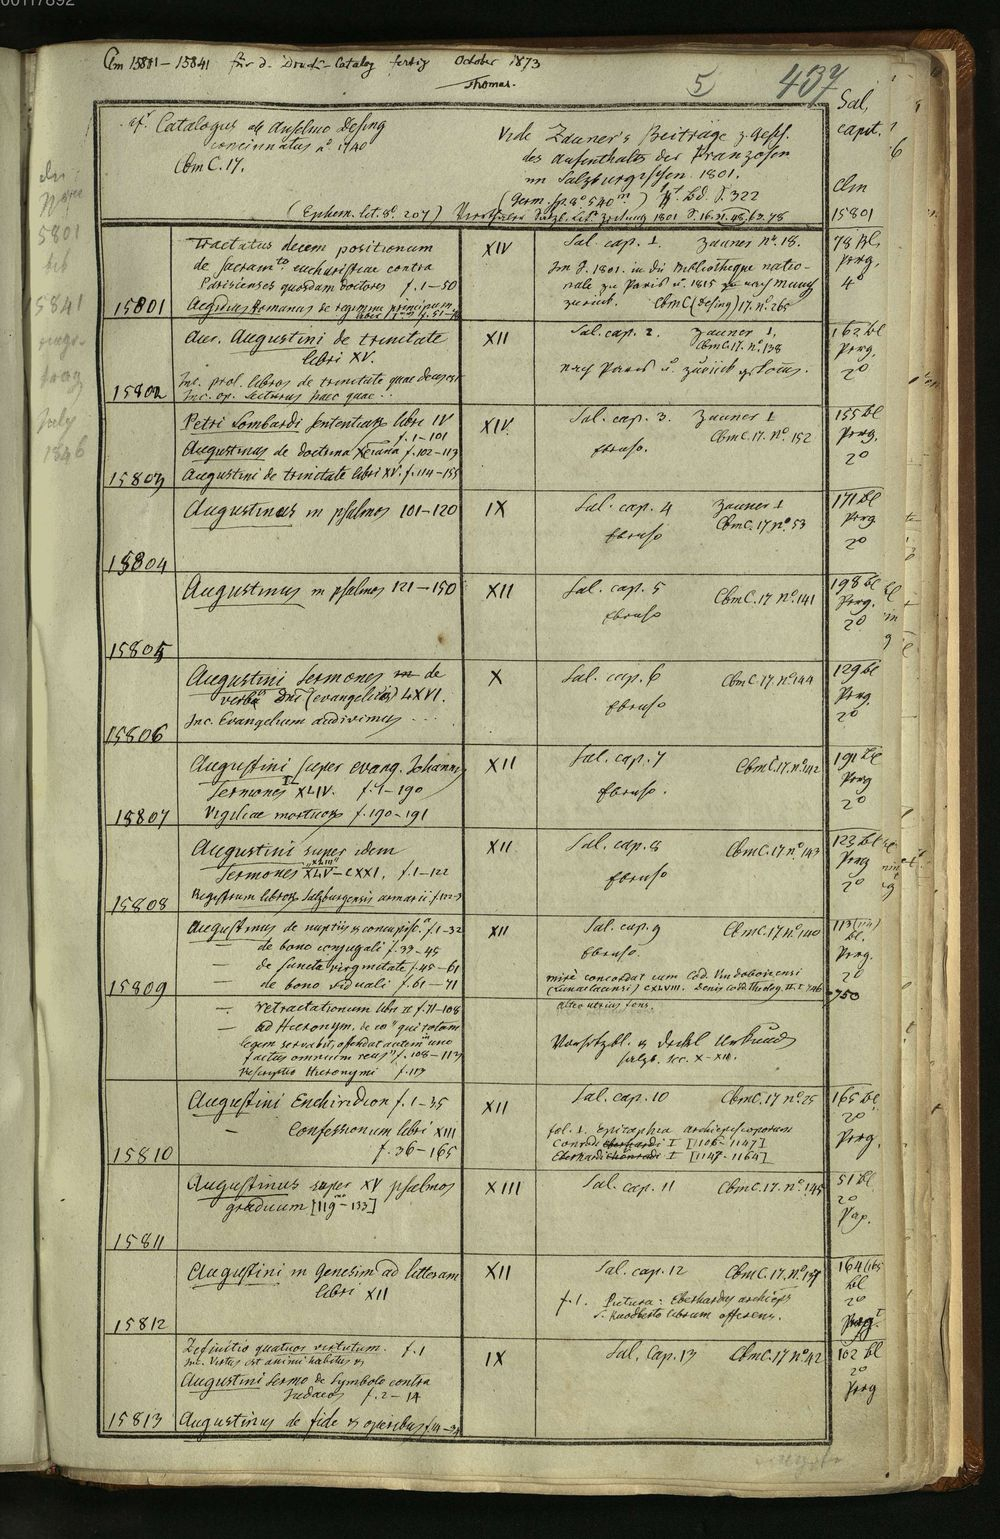 00117892
Clm 15801–15841 für d. Druck-Catalog fertig October 1873
Thomas.
5
437
cf. Catalogus ab Anselmo Desing
concinnatus aº 1740
Cbm C. 17.
Vide Zauner's Beiträge z. Gesch.
des Aufenthaltes der Franzosen
im Salzburgischen. 1801.
(Germ. sp. 8º 540 m) Bd. S. 322
(Ephem. lit. 8º 207) Zeitung 1801
Sal.
capit.
Clm
15801
5801
bis
5841
July
1846
Tractatus decem positionum
de Sacramto eucharistiae contra
Parisienses quosdam doctores f. 1–50
15801 Aegidius Romanus de regimine principum
XIV
Sal. cap. 1. Zauner nº 18.
Im J. 1801. in die Bibliotheque natio-
nale zu Paris u. 1815 nach
zurück. Cbm C (Desing) 17. nº 265
78 Bl.
Perg.
4º
Aur. Augustini de trinitate
libri XV.
Inc. prol. libros de trinitate quae deus est
15802 Inc. op. Lecturus haec quae . .
XII
Sal. cap. 2. Zauner 1.
Cbm C. 17. nº 138
nach Paris u. zurück gekom.
162 Bl
Perg.
2º
Petri Lombardi sententiarum libri IV
f. 1–101
Augustinus de doctrina Xriana f. 102–113
15803 Augustini de trinitate libri XV. f. 114–155
XIV.
Sal. cap. 3. Zauner 1
Cbm C. 17. Nº 152
ebenso.
155 Bl
Perg.
2º
Augustinus in psalmos 101–120
15804
IX
Sal. cap. 4 Zauner 1
Cbm C. 17 Nº 53
ebenso
171 Bl
Perg
2º
Augustinus in psalmos 121–150
15805
XII
Sal. cap. 5 Cbm C. 17 Nº 141
ebenso
198 Bl
Perg.
2º
Augustini Sermones in de
verbis Dni (evangeliis) LXVI.
Inc. Evangelium audivimus . . .
15806
X
Sal. cap. 6 Cbm C. 17. Nº 144
ebenso
129 Bl
Perg
2º
Augustini super evang. Johannis
Sermones I–XLIV. f. 1–190
15807 Vigiliae mortuorum f. 190–191
XII
Sal. cap. 7 Cbm C. 17. nº 142
ebenso.
191 Bl
Perg
2º
Augustini super idem
"XLIII"
Sermones XLV–CXXI. f. 1–122
15808 Registrum librorum Salzburgensis armarii f. 122–3
XII
Sal. cap. 8 Cbm C. 17 nº 143
ebenso
123 Bl
Perg
2º
Augustinus de nuptiis et concupisc. f. 1–32
— de bono conjugali f. 33–45
— de sancta virginitate f. 45–61
15809 — de bono viduali f. 61–71
— retractationum libri II f. 71–108
— ad Hieronym. de eo "qui totam
legem servabit, offendat autem in uno
factus omnium reus" f. 108–113
Rescriptio Hieronymi f. 113
XII
Sal. cap. 9 Cbm C. 17. Nº 140
ebenso.
mire concordat cum Cod. Vindobonensi
(Lunaelacensi) CXLVIII. Denis codd. theolog. II. I 746
–750
Vorsetzbl. u. Deckel Urkunden
Salzb. sec. X–XII.
113 (114)
Bl.
Perg.
2º
Augustini Enchiridion f. 1–35
— Confessionum libri XIII
15810 f. 36–165
XII
Sal. cap. 10 Cbm C. 17 nº 25
fol. 1. Epitaphia archiepiscoporum
Conradi Eberhardi I [1106–1147]
Eberhardi Conradi I [1147–1164]
165 Bl
2º
Perg.
Augustinus super XV psalmos
graduum [119–133]
15811
XIII
Sal. cap. 11 Cbm C. 17. nº 145
51 Bl
2º
Pap.
Augustini in Genesim ad litteram
libri XII
15812
XII
Sal. cap. 12 Cbm C. 17. Nº 137
f. 1. Pictura: Eberhardus archieps
S. Ruodberto librum offerens.
164 (165
Bl
2º
Perg.
Definitio quatuor virtutum. f. 1
Inc. Virtus est animi habitus
Augustini Sermo de Symbolo contra
Judaeos f. 2–14
15813 Augustinus de fide et operibus
IX
Sal. Cap. 13 Cbm C. 17 Nº 42
102 Bl
2º
Perg